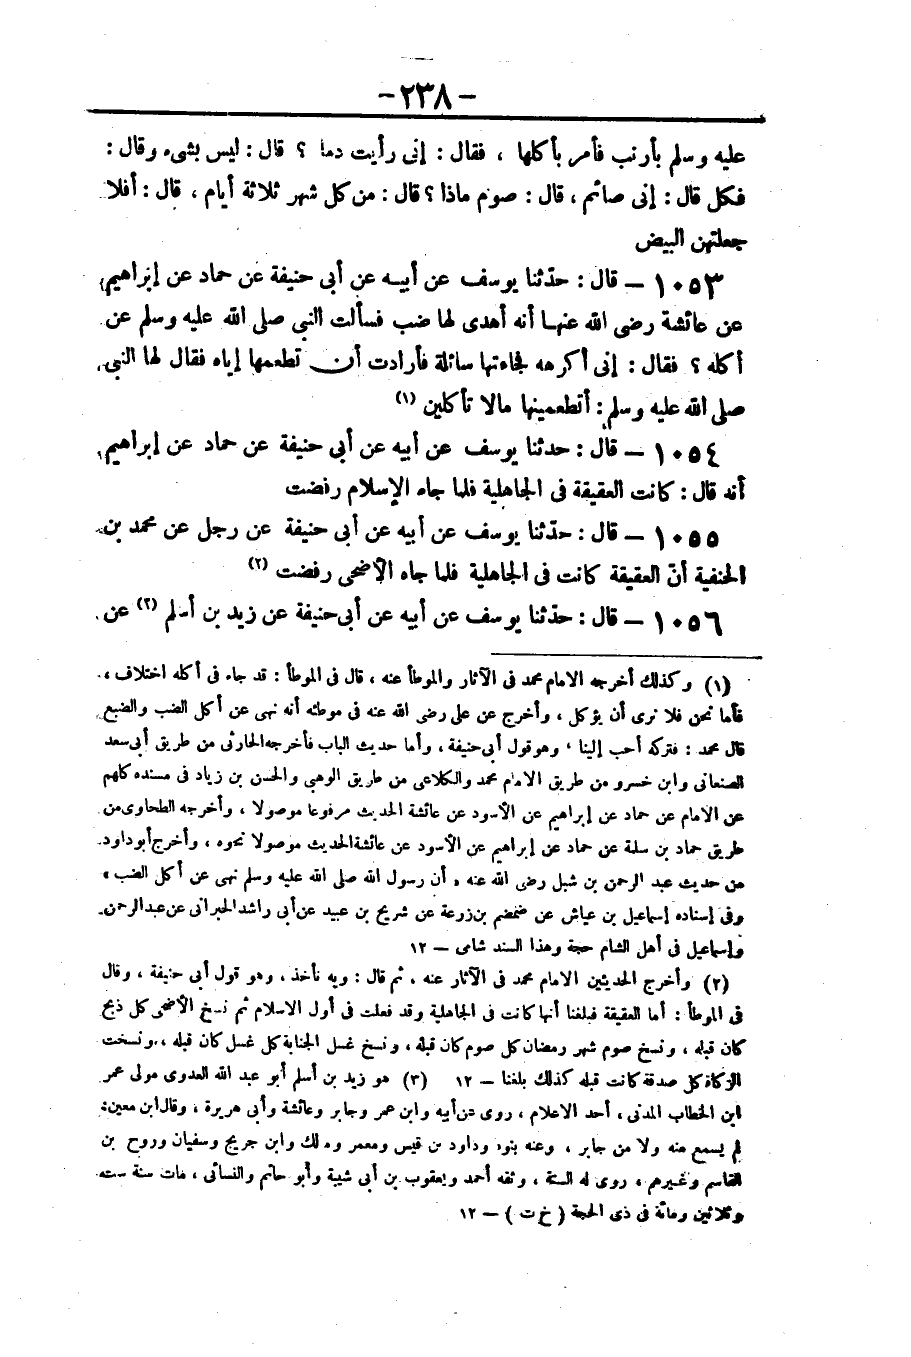 -٢٣٨-
عليه وسلم بأرنب فأمر بأكلها ، فقال : إنى رأيت دما ؟ قال : ليس بشىء وقال :
فكل قال : إنى صائم ، قال : صوم ماذا ؟ قال : من كل شهر ثلاثة أيام ، قال : أفلا
جعلتهن البيض
١٠٥٣ – قال : حدّثنا يوسف عن أبيه عن أبى حنيفة عن حماد عن إبراهيم
عن عائشة رضى الله عنها أنه أهدى لها ضب فسألت النبى صلى الله عليه وسلم عن
أكله ؟ فقال : إنى أكرهه فجاءتها سائلة فأرادت أن تطعمها إياه فقال لها النبى
صلى الله عليه وسلم : أتطعمينها مالا تأكلين (١)
١٠٥٤ – قال : حدثنا يوسف عن أبيه عن أبى حنيفة عن حماد عن إبراهيم
أنه قال : كانت العقيقة فى الجاهلية فلما جاء الإسلام رفضت
١٠٥٥ – قال : حدّثنا يوسف عن أبيه عن أبى حنيفة عن رجل عن محمد بن
الحنفية أنّ العقيقة كانت فى الجاهلية فلما جاء الأضحى رفضت (٢)
١٠٥٦ – قال : حدّثنا يوسف عن أبيه عن أبى حنيفة عن زيد بن أسلم (٣) عن
(١) وكذلك أخرجه الامام محمد فى الآثار والموطأ عنه ، قال فى الموطأ : قد جاء فى أكله اختلاف ،
فأما نحن فلا نرى أن يؤكل ، وأخرج عن على رضى الله عنه فى موطئه أنه نهى عن أكل الضب والضبع
قال محمد : فتركه أحب إلينا ، وهو قول أبى حنيفة ، وأما حديث الباب فأخرجه الحارثى من طريق أبى سعد
الصنعانى وابن خسرو من طريق الامام محمد والكلاعى من طريق الوهبى والحسن بن زياد فى مسنده كلهم
عن الامام عن حماد عن إبراهيم عن الأسود عن عائشة الحديث مرفوعا موصولا ، وأخرجه الطحاوى من
طريق حماد بن سلمة عن حماد عن إبراهيم عن الأسود عن عائشة الحديث موصولا نحوه ، وأخرج أبو داود
من حديث عبد الرحمن بن شبل رضى الله عنه « أن رسول الله صلى الله عليه وسلم نهى عن أكل الضب »
وفى إسناده إسماعيل بن عياش عن ضمضم بن زرعة عن شريح بن عبيد عن أبى راشد الحبرانى عن عبد الرحمن
وإسماعيل فى أهل الشام حجة وهذا السند شامى – ١٢
(٢) وأخرج الحديثين الامام محمد فى الآثار عنه ، ثم قال : وبه نأخذ ، وهو قول أبى حنيفة ، وقال
فى الموطأ : أما العقيقة فبلغنا أنها كانت فى الجاهلية وقد فعلت فى أول الاسلام ثم نسخ الأضحى كل ذبح
كان قبله ، ونسخ صوم شهر رمضان كل صوم كان قبله ، ونسخ غسل الجنابة كل غسل كان قبله ، ونسخت
الزكاة كل صدقة كانت قبله كذلك بلغنا – ١٢ (٣) هو زيد بن أسلم أبو عبد الله العدوى مولى عمر
ابن الخطاب المدنى ، أحد الاعلام ، روى عن أبيه وابن عمر وجابر وعائشة وأبى هريرة ، وقال ابن معين :
لم يسمع منه ولا من جابر ، وعنه بنوه وداود بن قيس ومعمر ومالك وابن جريج وسفيان وروح بن
القاسم وغيرهم ، روى له الستة ، وثقه أحمد ويعقوب بن أبى شيبة وأبو حاتم والنسائى ، مات سنة ست
وثلاثين ومائة فى ذى الحجة ( خ ت ) – ١٢